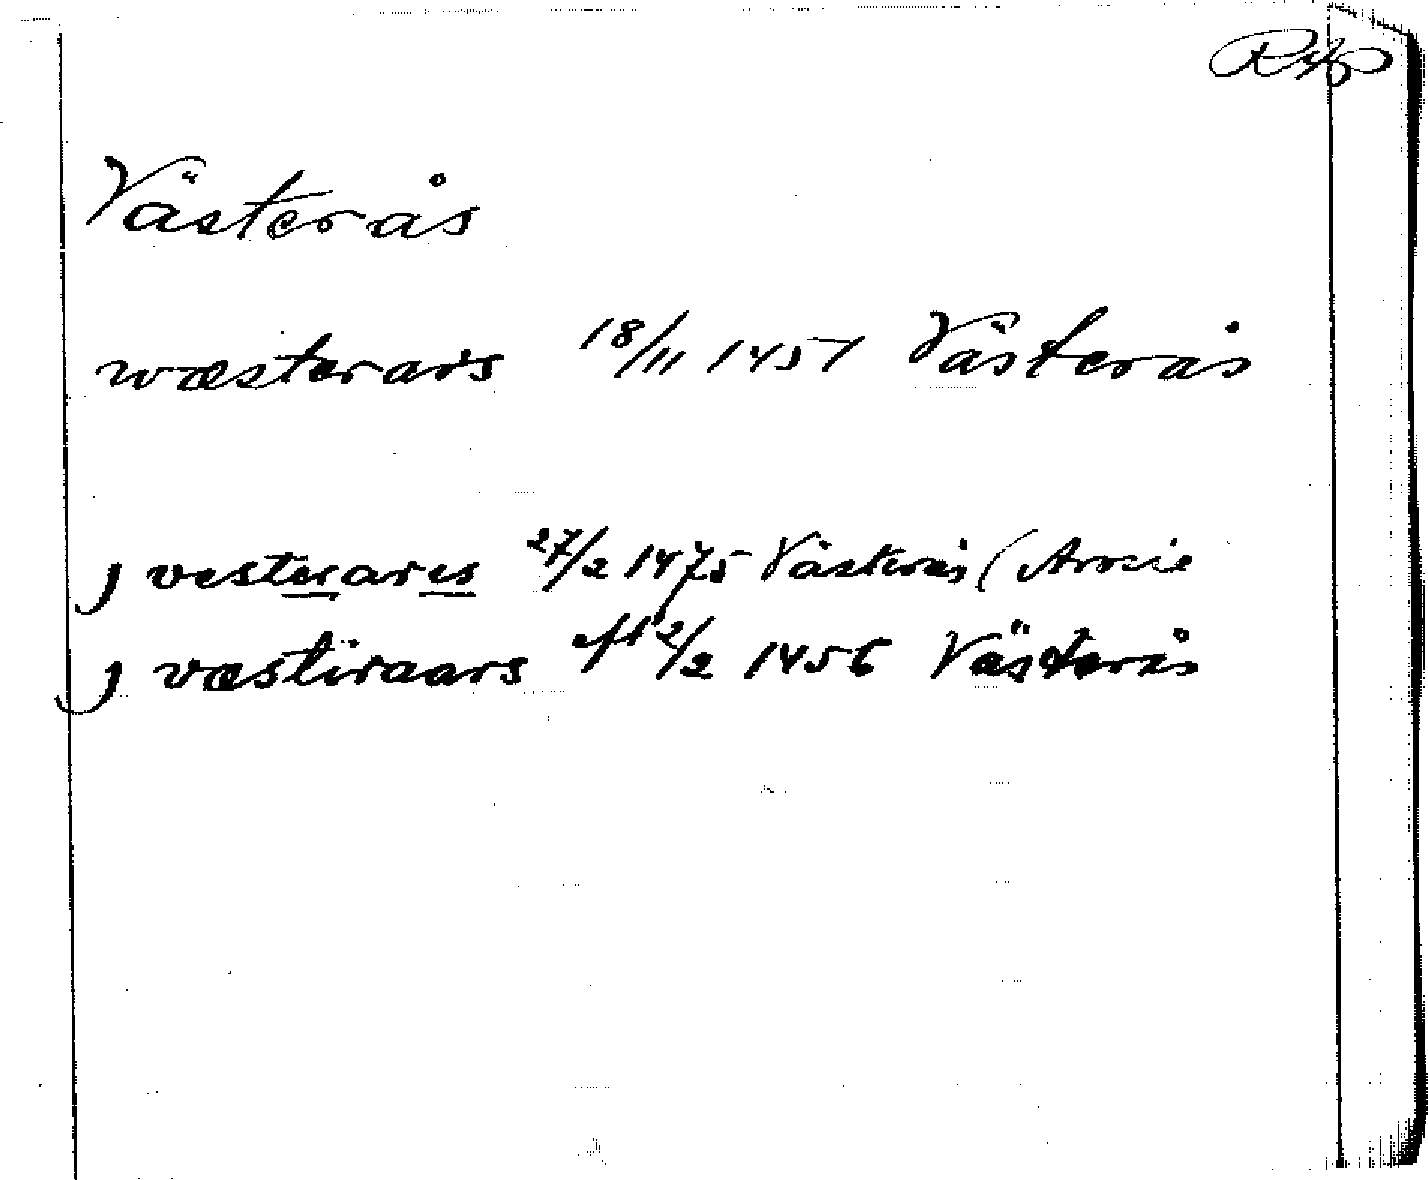 Västerås
wæsterars 18/11 1451 Västerås
j vesterares 27/2 1475 Västerås (
j væstiraars eft 2/2 1456 Västerås